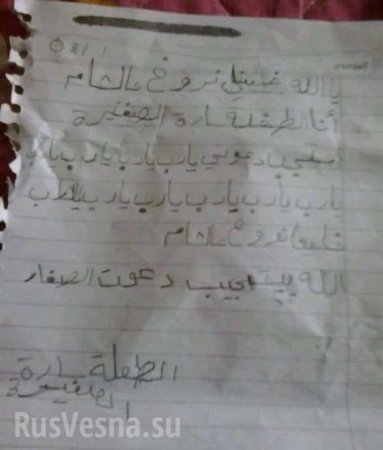 يا الله خليني نروح عالشام
أنا الطفلة سارة الصغيرة
استجب دعوتي يارب يارب يارب يارب
يارب يارب يارب يارب يارب يارب
خلينا نروح عالشام
الله بيستجيب دعوت الصغار
الطفلة سارة
الصغيرة
RusVesna.su